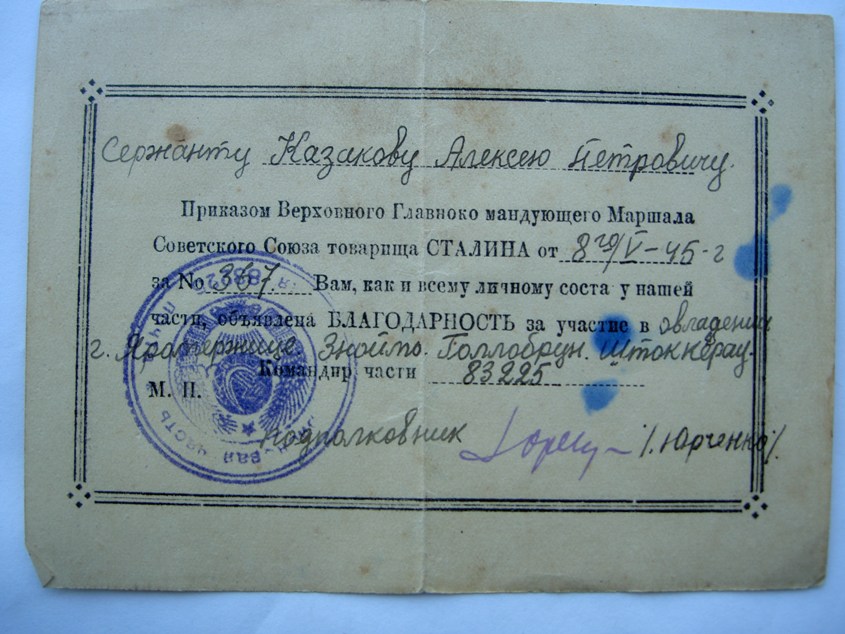 Сержанту Казакову Алексею Петровичу.
Приказом Верховного Главноко мандующего Маршала
Советского Союза товарища СТАЛИНА от 8го/V-45-г
за № 367. Вам, как и всему личному соста у нашей
части, объявлена БЛАГОДАРНОСТЬ за участие в овладении
г. Яромержице Зноймо. Голлобрун. Штоккерау.
Командир части 83225
М. П.
подполковник /. Юрченко/.